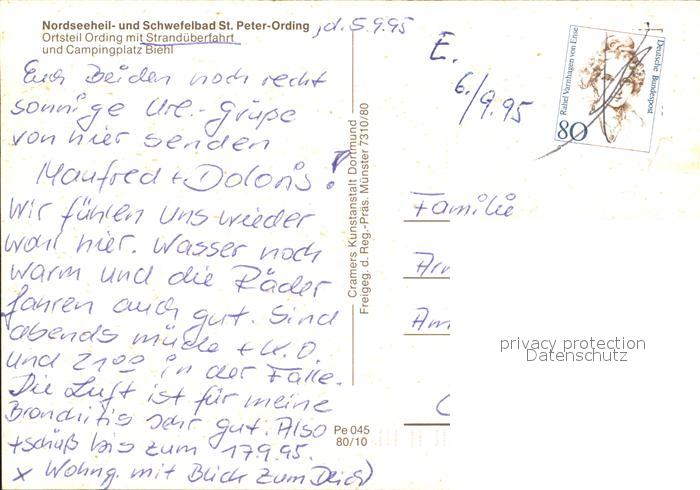 Nordseeheil- und Schwefelbad St. Peter-Ording
Ortsteil Ording mit Strandüberfahrt
und Campingplatz Biehl
, d. 5.9.95
Euch Beiden noch recht
sonnige Url.-grüße
von hier senden
Manfred + Doloris!
Wir fühlen uns wieder
wohl hier. Wasser noch
warm und die Räder
fahren auch gut. Sind
abends müde + K.O.
und 21 00 in der Falle.
Die Luft ist für meine
Bronchitis sehr gut. Also
tschüß bis zum 17.9.95.
x Wohng. mit Blick zum Deich
Cramers Kunstanstalt Dortmund
Freigeg. d. Reg.-Präs. Münster 7310/80
Pe 045
80/10
E.
6./9.95
Rahel Varnhagen von Ense
Deutsche Bundespost
80
Familie
Am
privacy protection
Datenschutz